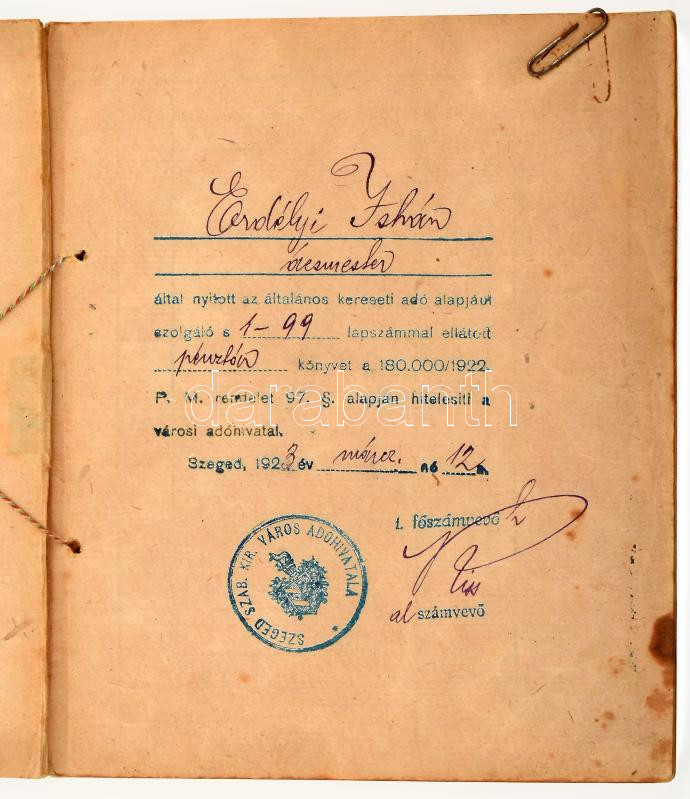 Erdélyi István
ácsmester
által nyitott az általános kereseti adó alapjául
szolgáló s 1-99 lapszámmal ellátott
pénztár könyvet a 180.000/1922.
P. M. rendelet 97. §. alapján hitelesiti a
városi adóhivatal.
Szeged, 1923 év márcz. hó 12 n.
i. főszámvevő h
Kiss
al számvevő
SZEGED SZAB. KIR. VÁROS ADÓHIVATALA
darabanth